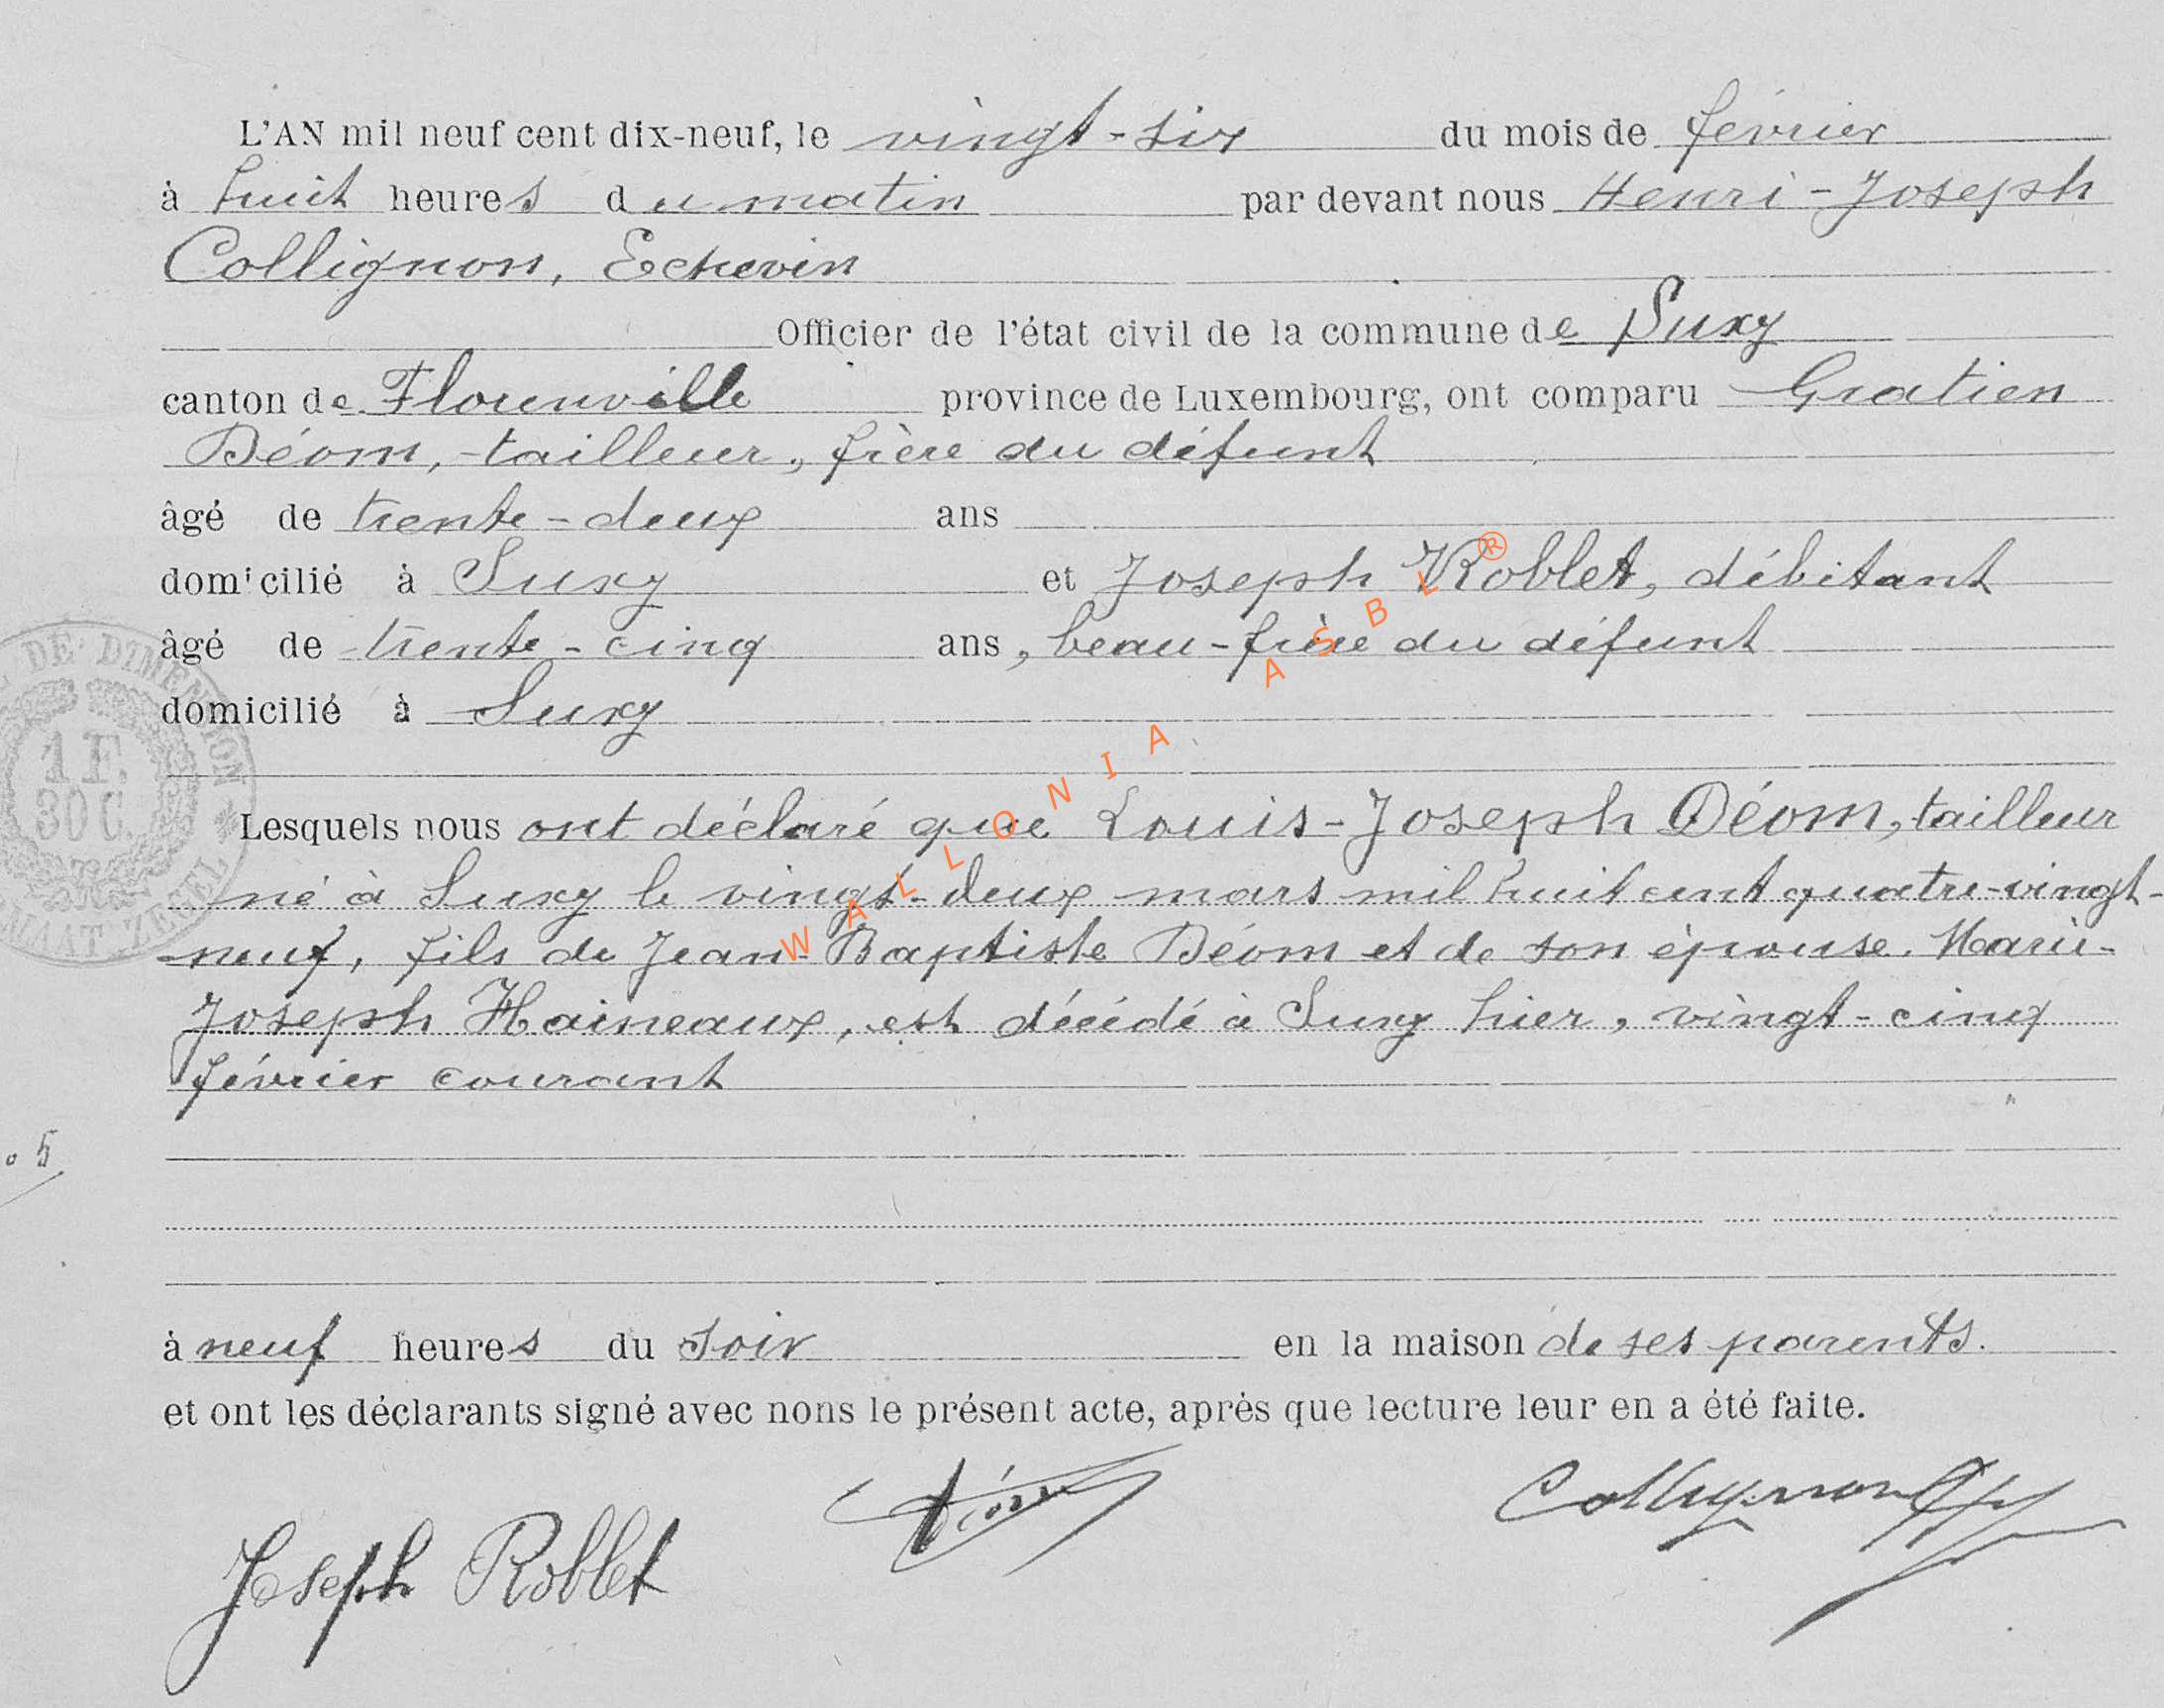 L'AN mil neuf cent dix-neuf, le vingt-six du mois de février
à huit heures du matin par devant nous Henri-Joseph
Collignon, Echevin
Officier de l'état civil de la commune de Suxy
canton de Florenville province de Luxembourg, ont comparu Gratien
Déom, tailleur, frère du défunt
âgé de trente-deux ans
domicilié à Suxy et Joseph Roblet, débitant
âgé de trente-cinq ans, beau-frère du défunt
domicilié à Suxy
DE DIMENSION
1 F.
30 C.
MAAT-ZEGEL
Lesquels nous ont déclaré que Louis-Joseph Déom, tailleur
né à Suxy le vingt-deux mars mil huit cent quatre-vingt-
neuf, fils de Jean-Baptiste Déom et de son épouse Marie-
Joseph Haineaux, est décédé à Suxy hier, vingt-cinq
février courant
o 5
à neuf heures du soir en la maison de ses parents.
et ont les déclarants signé avec nons le présent acte, après que lecture leur en a été faite.
Déom
Collignon
Joseph Roblet
WALLONIA ASBL ®